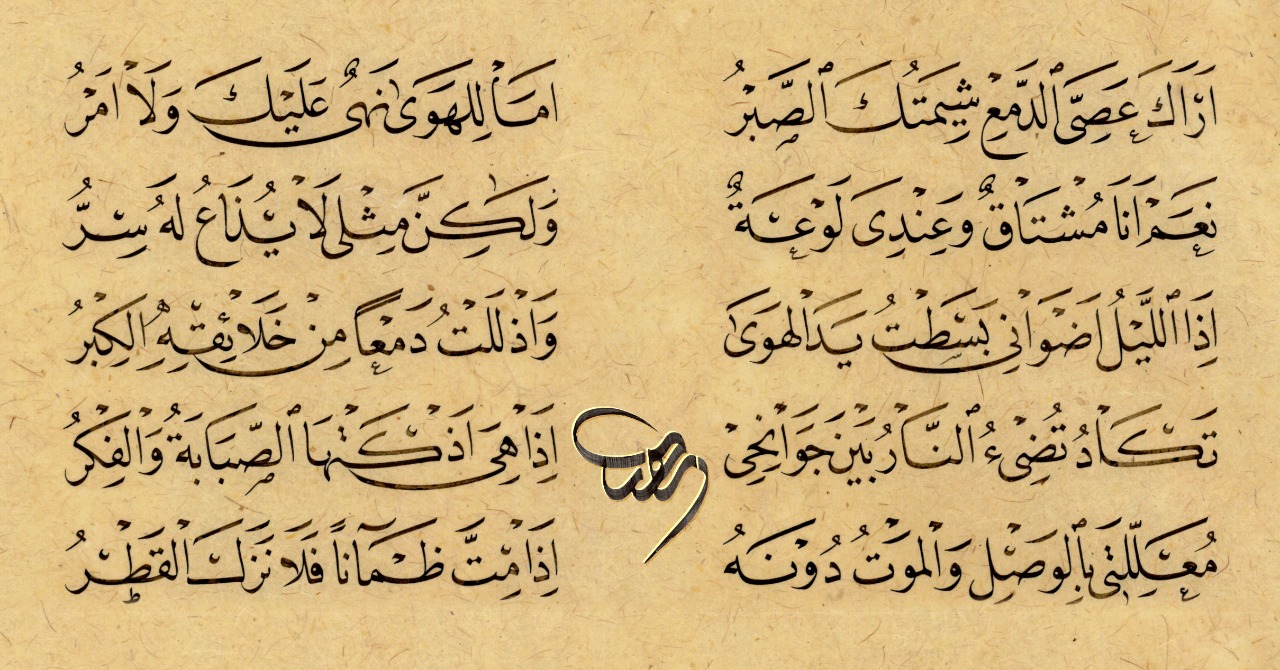 اَرَاكَ عَصِىَّ ٱلدَّمْعِ شِيمَتُكَ ٱلصَّبْرُ اَمَا لِلهَوَىٰ نَهْىٌ عَلَيْكَ وَلَا اَمْرُ
نَعَمْ اَنَا مُشْتَاقٌ وَعِنْدِىَ لَوْعَةٌ وَلٰكِنَّ مِثْلِى لَا يُذَاعُ لَهُ سِرُّ
اِذَا ٱللَّيْلُ اَضْوَانِى بَسَطْتُ يَدَ الهَوَىٰ وَاَذْلَلْتُ دَمْعًا مِنْ خَلَائِقِهِ الكِبْرُ
تَكَادُ تُضِىءُ ٱلنَّارُ بَيْنَ جَوَانِحِىْ اِذَا هِىَ اَذْكَتْهَا ٱلصَّبَابَةُ وَالْفِكْرُ
مُعَلِّلَتِى بِٱلوَصْلِ وَالْمَوْتُ دُوْنَهُ اِذَا مِتُّ ظَمْآنًا فَلَا نَزَلَ الْقَطْرُ